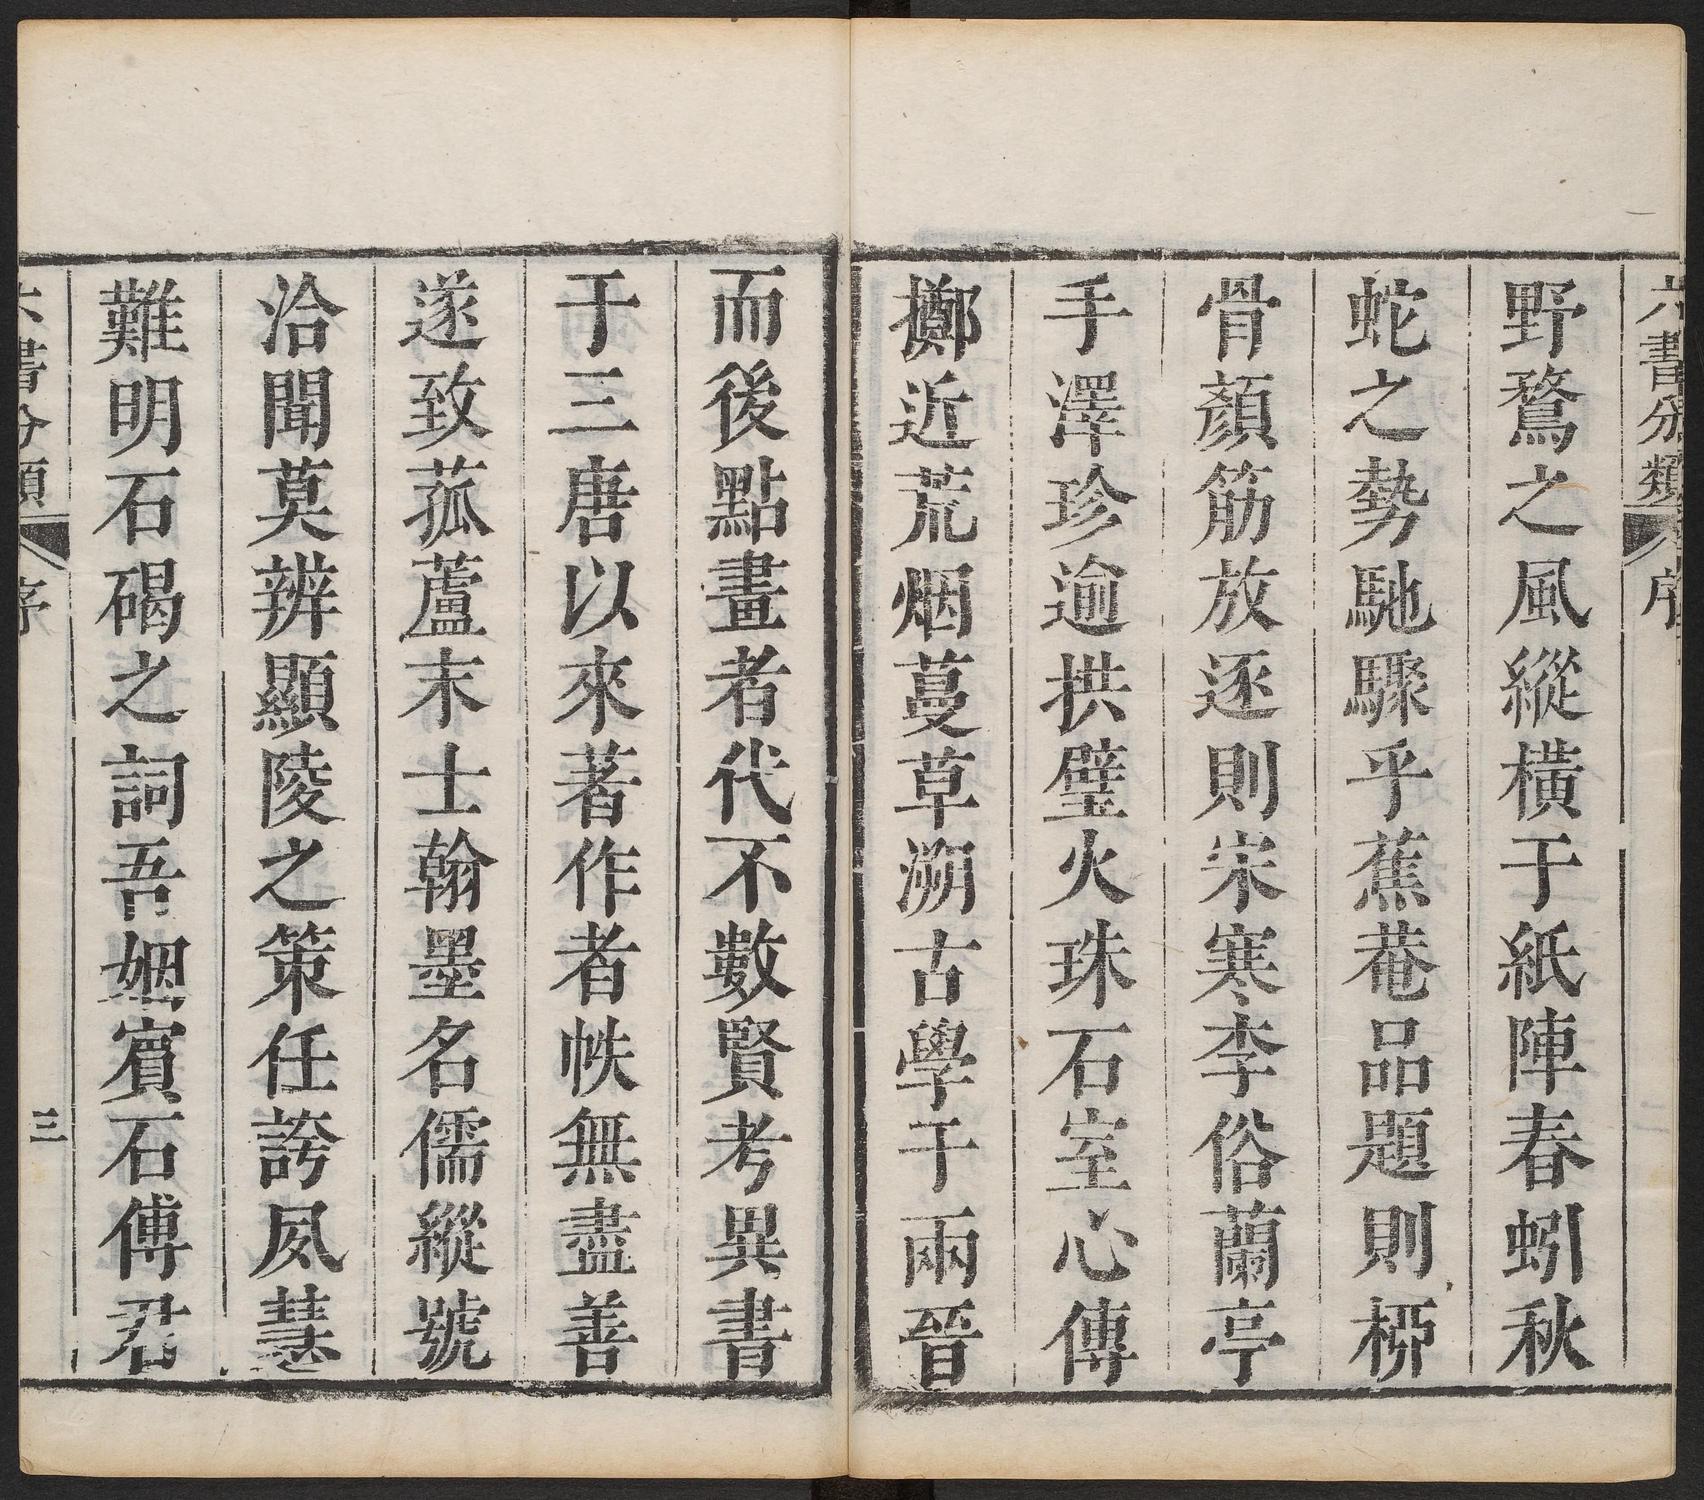 六書分類 序
野鶩之風縱橫于紙陣春蚓秋
蛇之勢馳驟乎蕉菴品題則栁
骨顏筋放逐則宋寒李俗蘭亭
手澤珍逾拱璧火珠石室心傳
擲近荒烟蔓草溯古學于兩晉
而後點畫者代不數賢考異書
于三唐以來著作者帙無盡善
遂致菰蘆末士翰墨名儒縱號
洽聞莫辨顯陵之策任誇夙慧
難明石碣之詞吾姻賔石傅君
六書分類 序 三